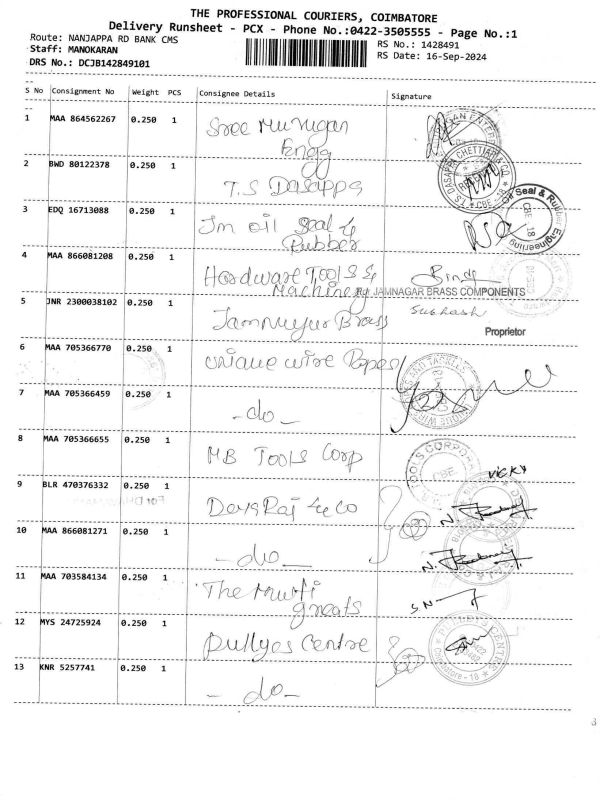 THE PROFESSIONAL COURIERS, COIMBATORE
Delivery Runsheet - PCX - Phone No.:0422-3505555 - Page No.:1
Route: NANJAPPA RD BANK CMS
RS No.: 1428491
Staff: MANOKARAN
RS Date: 16-Sep-2024
DRS No.: DCJB142849101
S No Consignment No Weight PCS Consignee Details Signature
1 MAA 864562267 0.250 1 Sree Murugan
Engg
2 BWD 80122378 0.250 1
T.S Dasappa
3 EDQ 16713088 0.250 1 Jm oil Seal &
Rubber
4 MAA 866081208 0.250 1
Hardware Tools &
Machinery
JAMNAGAR BRASS COMPONENTS
5 JNR 2300038102 0.250 1 Brass
Subhash
Proprietor
6 MAA 705366770 0.250 1 unique wire Ropes
7 MAA 705366459 0.250 1
- do -
8 MAA 705366655 0.250 1
MB Tools Corp
VICKY
9 BLR 470376332 0.250 1
DevsRaj & Co
10 MAA 866081271 0.250 1
- do -
11 MAA 703584134 0.250 1 The Murti
greats
S.N
12 MYS 24725924 0.250 1
pullyes Centre
13 KNR 5257741 0.250 1
- do -